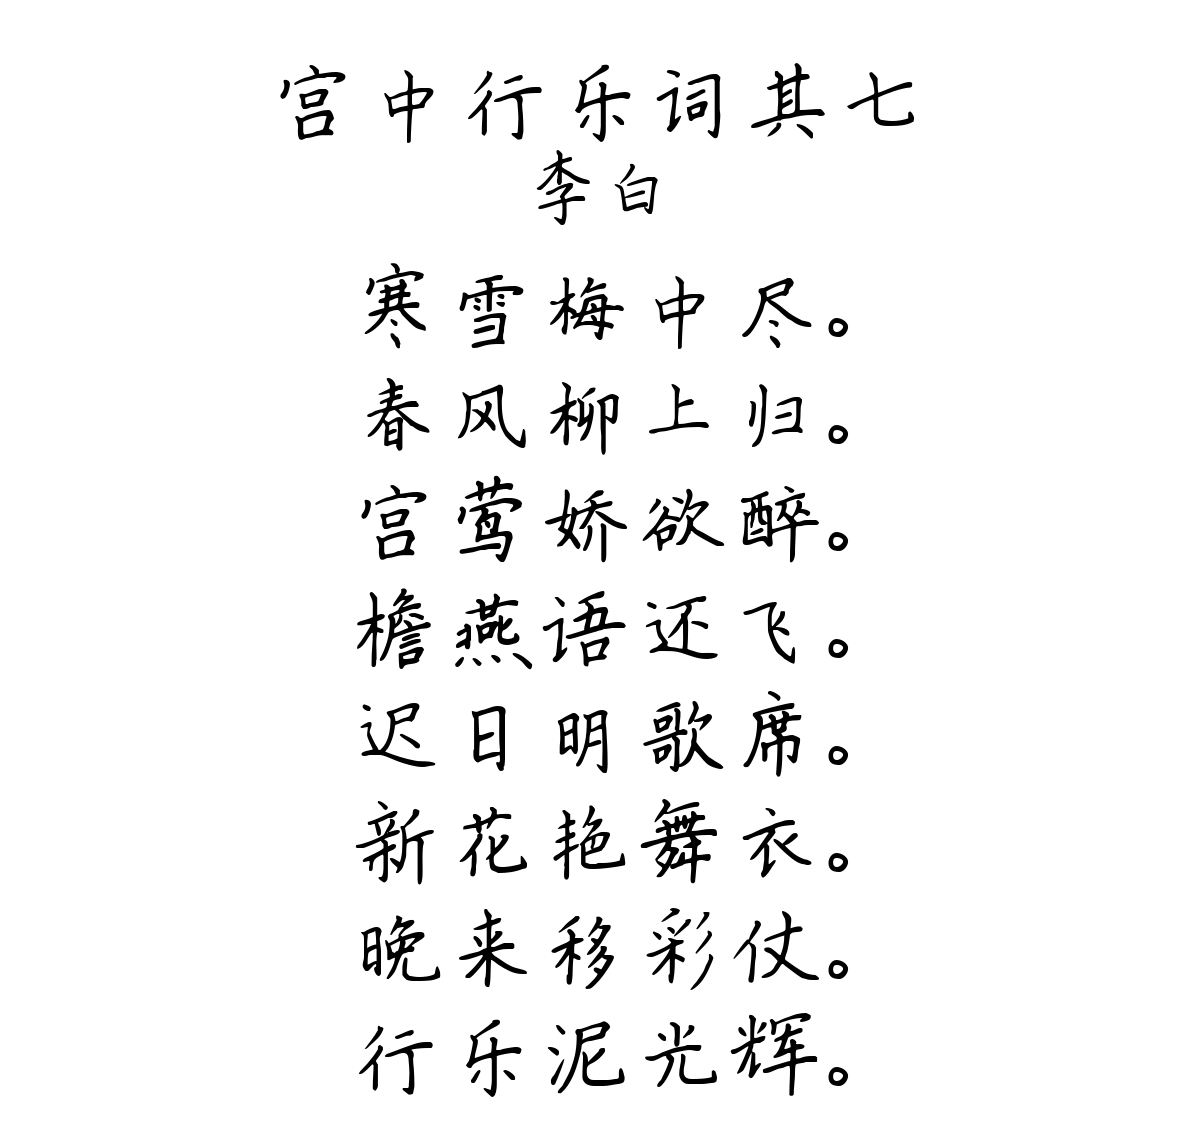 宫中行乐词其七
李白
寒雪梅中尽。
春风柳上归。
宫莺娇欲醉。
檐燕语还飞。
迟日明歌席。
新花艳舞衣。
晚来移彩仗。
行乐泥光辉。